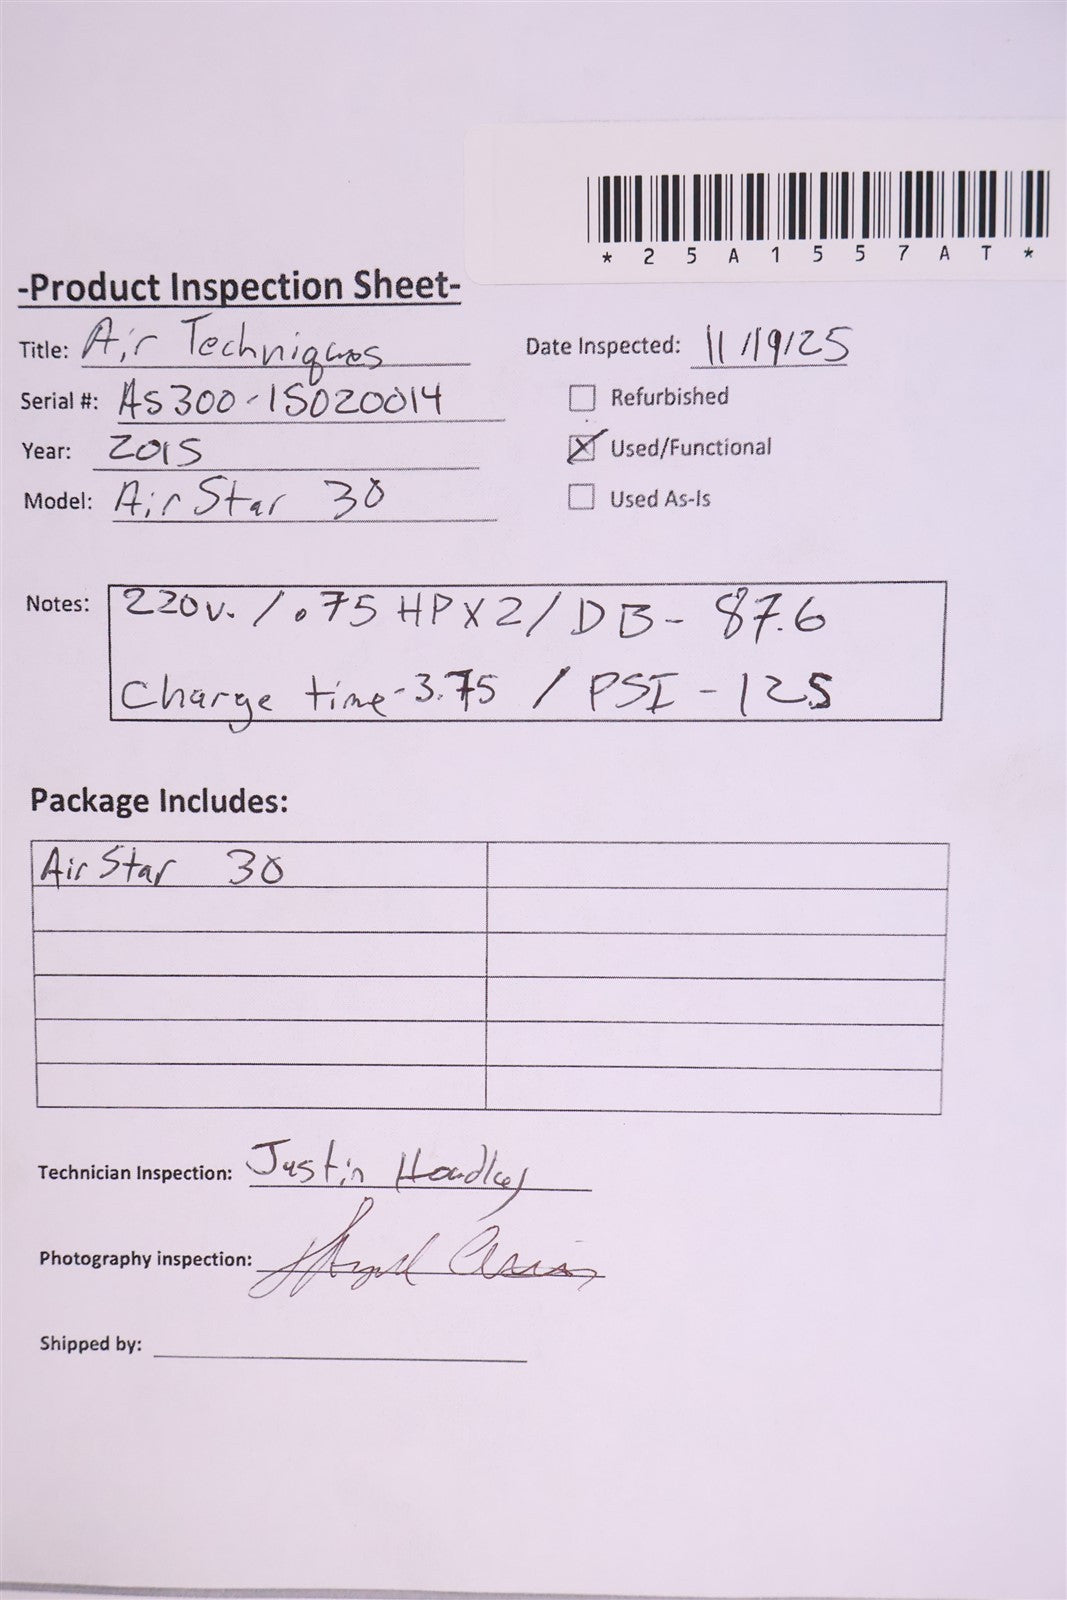 *25A1557AT*
-Product Inspection Sheet-
Title: Air Techniques
Date Inspected: 11/19/25
Serial #: AS300-15020014
Refurbished
Year: 2015
Used/Functional
Model: Air Star 30
Used As-Is
Notes: 220v. / .75 HP X2 / DB - 87.6
Charge time - 3.75 / PSI - 125
Package Includes:
Air Star 30
Technician Inspection: Justin
Photography inspection:
Shipped by: